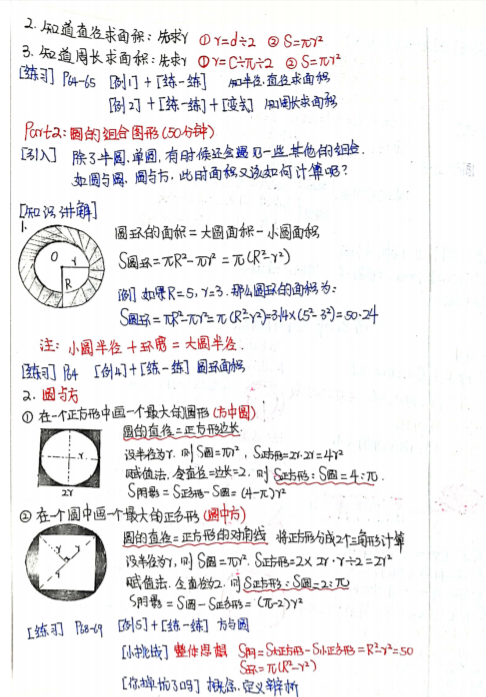 2. 知道直径求面积：先求r ①r=d÷2 ②S=πr²
3. 知道周长求面积：先求r ①r=C÷π÷2 ②S=πr²
[练习] P64-65 [例1]+[练一练] 知半径,直径求面积
[例2]+[练一练]+[变式] 知周长求面积
Part2：圆的组合图形(50分钟)
[引入] 除了半圆,单圆,有时候还会遇见一些其他的组合.
如圆与圆、圆与方,此时面积又该如何计算呢?
[知识讲解]
1.
O r
R
圆环的面积=大圆面积-小圆面积
S圆环=πR²-πr²=π(R²-r²)
[例] 如果R=5,r=3.那么圆环的面积为:
S圆环=πR²-πr²=π(R²-r²)=3.14×(5²-3²)=50.24
注: 小圆半径+环宽=大圆半径.
[练习] P64 [例4]+[练一练] 圆环面积
2. 圆与方
① 在一个正方形中画一个最大的圆形(方中圆)
圆的直径=正方形边长.
设半径为r.则S圆=πr², S正方形=2r·2r=4r²
赋值法,令直径=边长=2,则S正方形:S圆=4:π.
S阴影=S正方形-S圆=(4-π)r²
r
2r
② 在一个圆中画一个最大的正方形(圆中方)
圆的直径=正方形的对角线 将正方形分成2个三角形计算
设半径为r,则S圆=πr². S正方形=2×2r·r÷2=2r²
赋值法 令直径为2,则S正方形:S圆=2:π
S阴影=S圆-S正方形=(π-2)r²
r r
r
[练习] P68-69 [例5]+[练一练] 方与圆
[小挑战] 整体思想 S阴=S大正方形-S小正方形=R²-r²=50
S环=π(R²-r²)
[你掉坑了吗] 概念,定义辨析